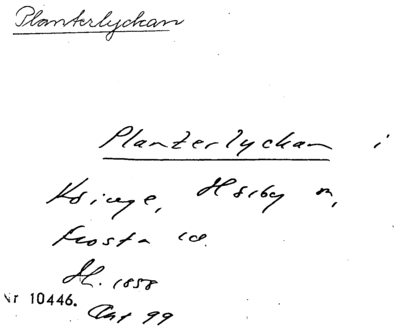 Planterlyckan
Planterlyckan i
Hörby n,
Frosta hd.
H. 1858
Nr 10446.
Kat 99